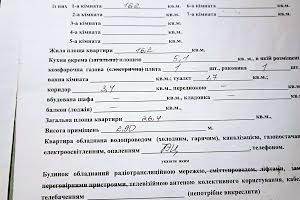 Із них 1-а кімната 16,2 кв.м. 6-а кімната кв.м.
2-а кімната кв.м. 7-а кімната кв.м.
3-а кімната кв.м. 8-а кімната кв.м.
4-а кімната кв.м. 9-а кімната кв.м.
5-а кімната кв.м.
Жила площа квартири 16,2 кв.м.
Кухня окрема (загальна) площею 5,1 кв.м., в якій розміщені
комфорочна газова (електрична) плита 1 шт., раковина 1 шт.
ванна кімната кв.м.; туалет 1,7 кв.м.;
коридор 3,4 кв.м., передпокою — кв.м.
вбудована шафа — кв.м., кладовка — кв.м.
балкон (лоджія) — кв.м.
Загальна площа квартири 26,4 кв.м.
Висота приміщень 2,90 м.
Квартира обладнана водопроводом (холодним, гарячим), каналізацією, газопостачанням
електроосвітленням, опаленням телефоном.
Будинок обладнаний радіотрансляційною мережею, сміттєпроводом, ліфтами,
переговорними пристроями, телевізійною антеною колективного користування,
(непотрібне викреслити)